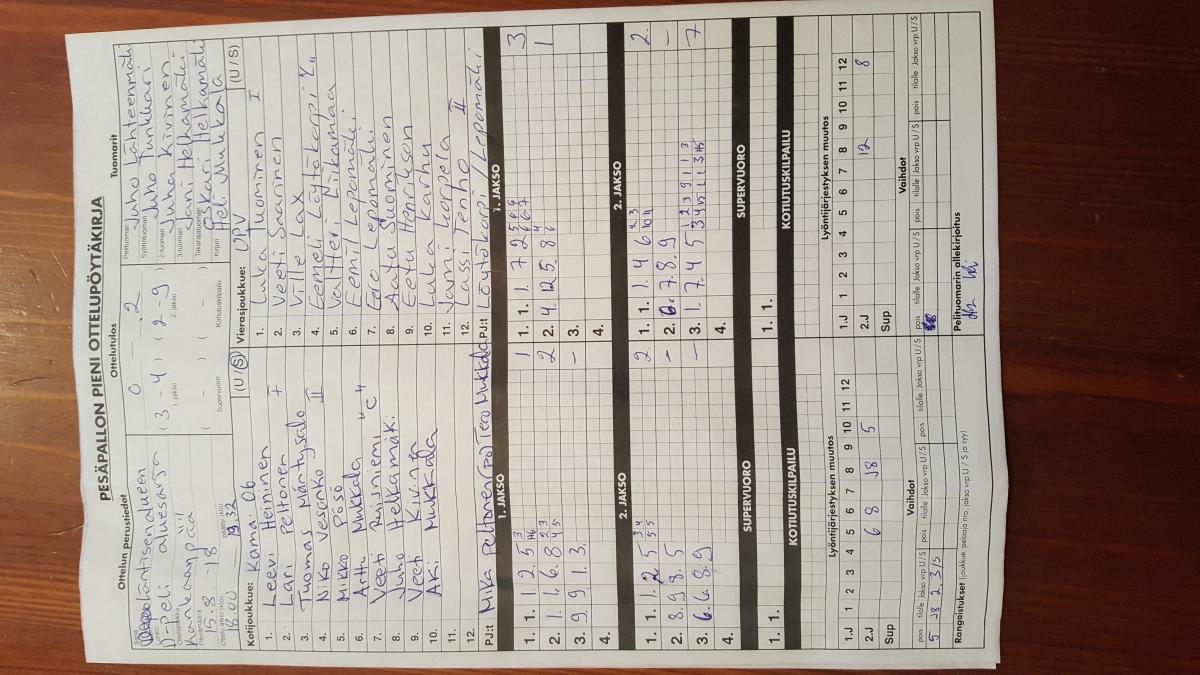 PESÄPALLON PIENI OTTELUPÖYTÄKIRJA
Ottelun perustiedot Ottelutulos Tuomarit
Sarja Läntisenalueen
D-peli aluesarja
Kankaanpää
Päivämäärä 15.8.-18
Ottelu alkoi (klo) 18.00 päättyi (klo) 19.32
0 - 2
( 3 - 4 ) ( 2 - 9 )
1. jakso 2. jakso
( - ) ( - )
Supervuoro Kotiutuskilpailu
Pelituomari Juho Lähteenmäki
Syöttötuomari Juho Tunkkari
2-tuomari Juha Kivinen
3-tuomari Jani Helkamäki
Takarajatuomari Oskari Helkamäki
Kirjuri Heli Mukkala
Kotijoukkue: KaMa 06 (U / S)
1. Leevi Heiminen I
2. Lari Peltonen
3. Tuomas Mväntysalo
4. Niko Vesanko II
5. Mikko Pösö
6. Artti Mukkala
7. Veeti Ruisniemi "C"
8. Juho Helkamäki
9. Veeti Kivinen
10. Aki Mukkala
11.
12.
PJ:t Mika Peltonen Tero Mukkala
Vierasjoukkue: UPV (U / S)
1. Luka Tuominen I
2. Veeti Saarinen
3. Ville Lax
4. Eemeli Löytökorpi
5. Valtteri Niikamaa
6. Eemil Lepomäki
7. Eero Lepomäki
8. Aatu Suominen
9. Eetu Henrikson
10. Luka Karhu
11. Jami Korpela
12. Lassi Tenho II
PJ:t Löytökorpi / Lepomäki
1. JAKSO 1. JAKSO
1. 1. 1. 2. 5 1
2. 1. 1. 6. 8 2
3. 9 9 1. 3. -
4.
1. 1. 1. 7. 2 3
2. 4. 12. 5. 8 1
3. -
4.
2. JAKSO 2. JAKSO
1. 1. 1. 2. 5 2
2. 8. 9. 8. 5 -
3. 6. 6. 8. 9 -
4.
1. 1. 1. 4 6 2.
2. 6. 7. 8. 9 -
3. 1. 7. 4 5 7
4.
SUPERVUORO SUPERVUORO
1. 1. 1. 1.
KOTIUTUSKILPAILU KOTIUTUSKILPAILU
Lyöntijärjestyksen muutos Lyöntijärjestyksen muutos
1.J 1 2 3 4 5 6 7 8 9 10 11 12
2.J 6 8 18 5
Sup
1.J 1 2 3 4 5 6 7 8 9 10 11 12
2.J 12 8
Sup
Vaihdot Vaihdot
pois tilalle Jakso vrp U / S pois tilalle Jakso vrp U / S pois tilalle Jakso vrp U / S
5 18 2. 3/5
pois tilalle Jakso vrp U / S pois tilalle Jakso vrp U / S pois tilalle Jakso vrp U / S
Rangaistukset (joukkue, pelaaja nro, jakso vrp U / S ja syy)
Pelituomarin allekirjoitus